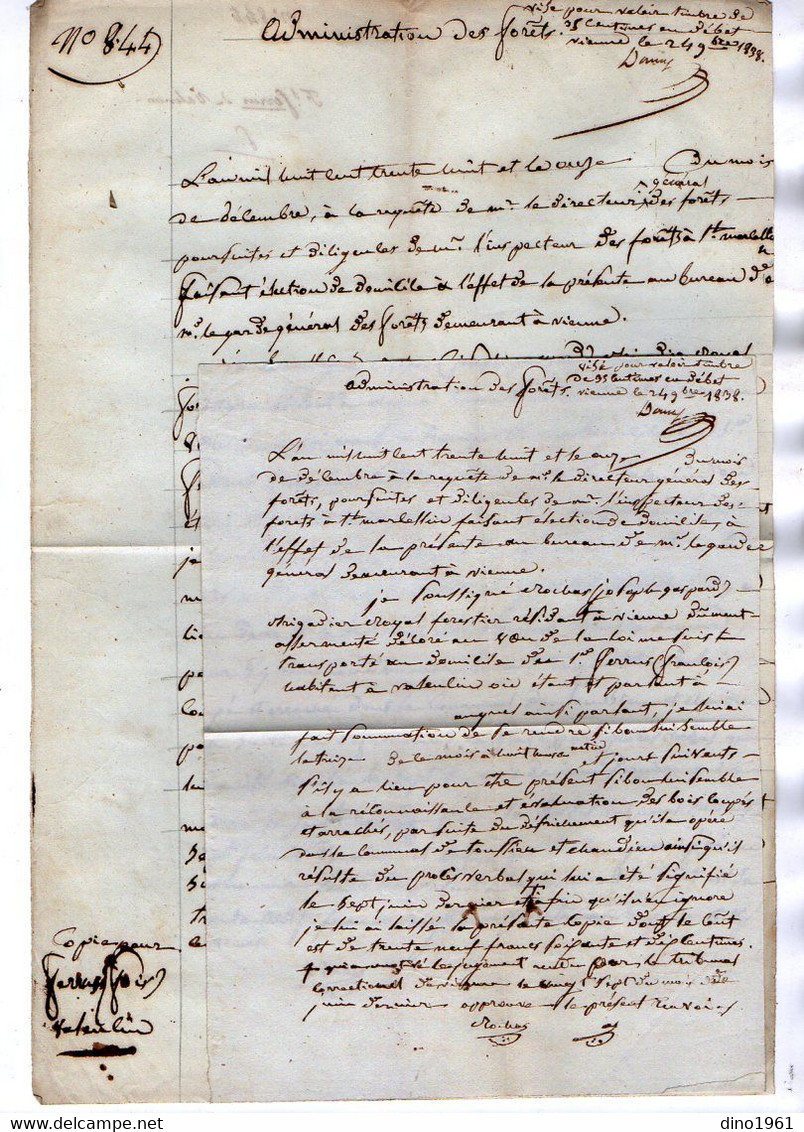 No 844
Administration des forêts.
visé pour valoir timbre de
35 centimes en débet
vienne le 24 9bre 1838.
L'an mil huit cent trente huit et le onze Du mois
de décembre, à la requête de Mr. le directeur général des forêts
poursuites et diligences de Mr. l'inspecteur des forêts à St. marcellin
faisant élection de domicile à l'effet de la présente au bureau de
Mr. le garde général des forêts demeurant à vienne.
visé pour valoir timbre
Administration des forêts.
de 35 centimes en débet
vienne le 24 9bre 1838.
L'an mil huit cent trente huit et le onze Du mois
de décembre à la requête de Mr. le directeur général des
forêts, poursuites et diligences de Mr. l'inspecteur des
forêts à St. marcellin faisant élection de domicile, à
l'effet de la présente au bureau de Mr. le garde
général demeurant à vienne.
je soussigné Rochas (joseph gaspard)
brigadier Royal forestier résidant à vienne dûment
assermenté décoré au vœu de la loi me suis
transporté au domicile du Sr. ferrus (francois)
habitant à valencin où étant et parlant à
auquel ainsi parlant, je lui ai
fait sommation de se rendre si bon lui semble
le treize de ce mois à huit heures matin et jours suivants
s'il y a lieu pour être présent si bon lui semble
à la reconnaissance et évaluation des bois coupés
et arrachés, par suite du défrichement qu'il a opéré
dans le communal de toussieu et chandieu ainsi qu'il
résulte du procès verbal qui lui a été signifié
le sept juin dernier et afin qu'il n'en ignore
je lui ai laissé la présente copie dont le coût
est de trente neuf francs soixante et dix centimes.
le jugement rendu par le tribunal
correctionel de vienne le vingt sept du mois de
juin dernier approuvé le présent renvoi.
Rochas
Copie pour
ferrus fois
valencin
dino1961